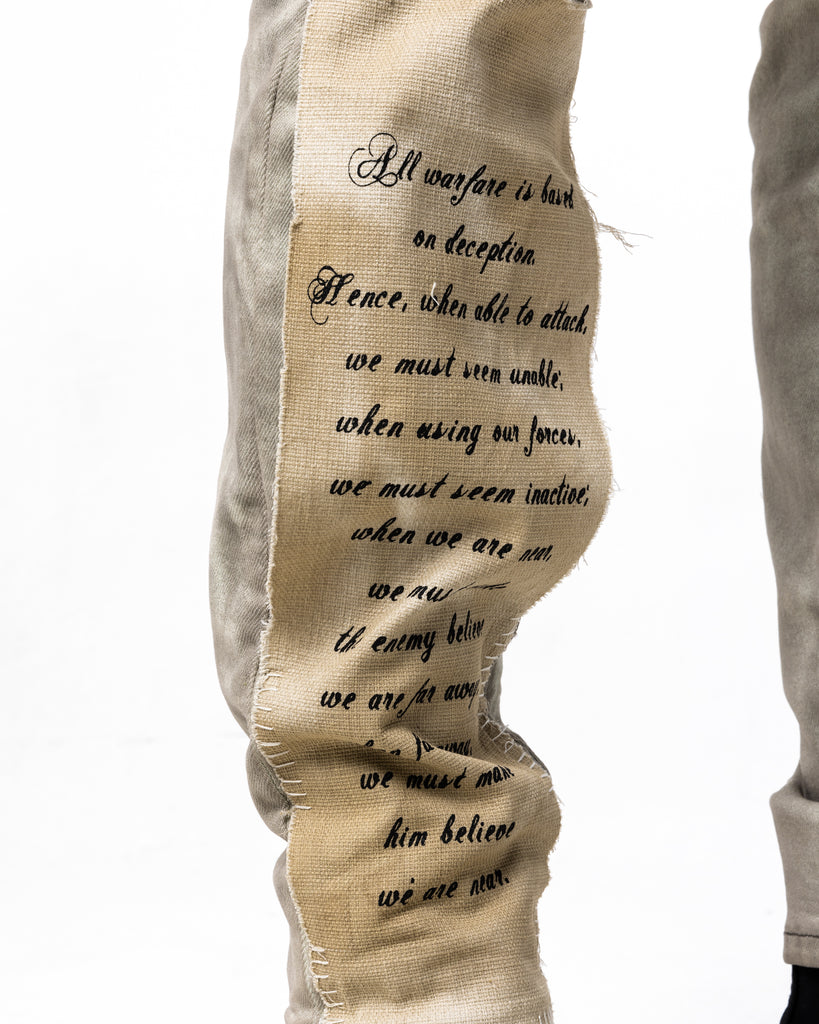 All warfare is based
on deception.
Hence, when able to attach,
we must seem unable;
when using our forces,
we must seem inactive;
when we are near,
we
th enemy believe
we are far away
we must make
him believe
we are near.